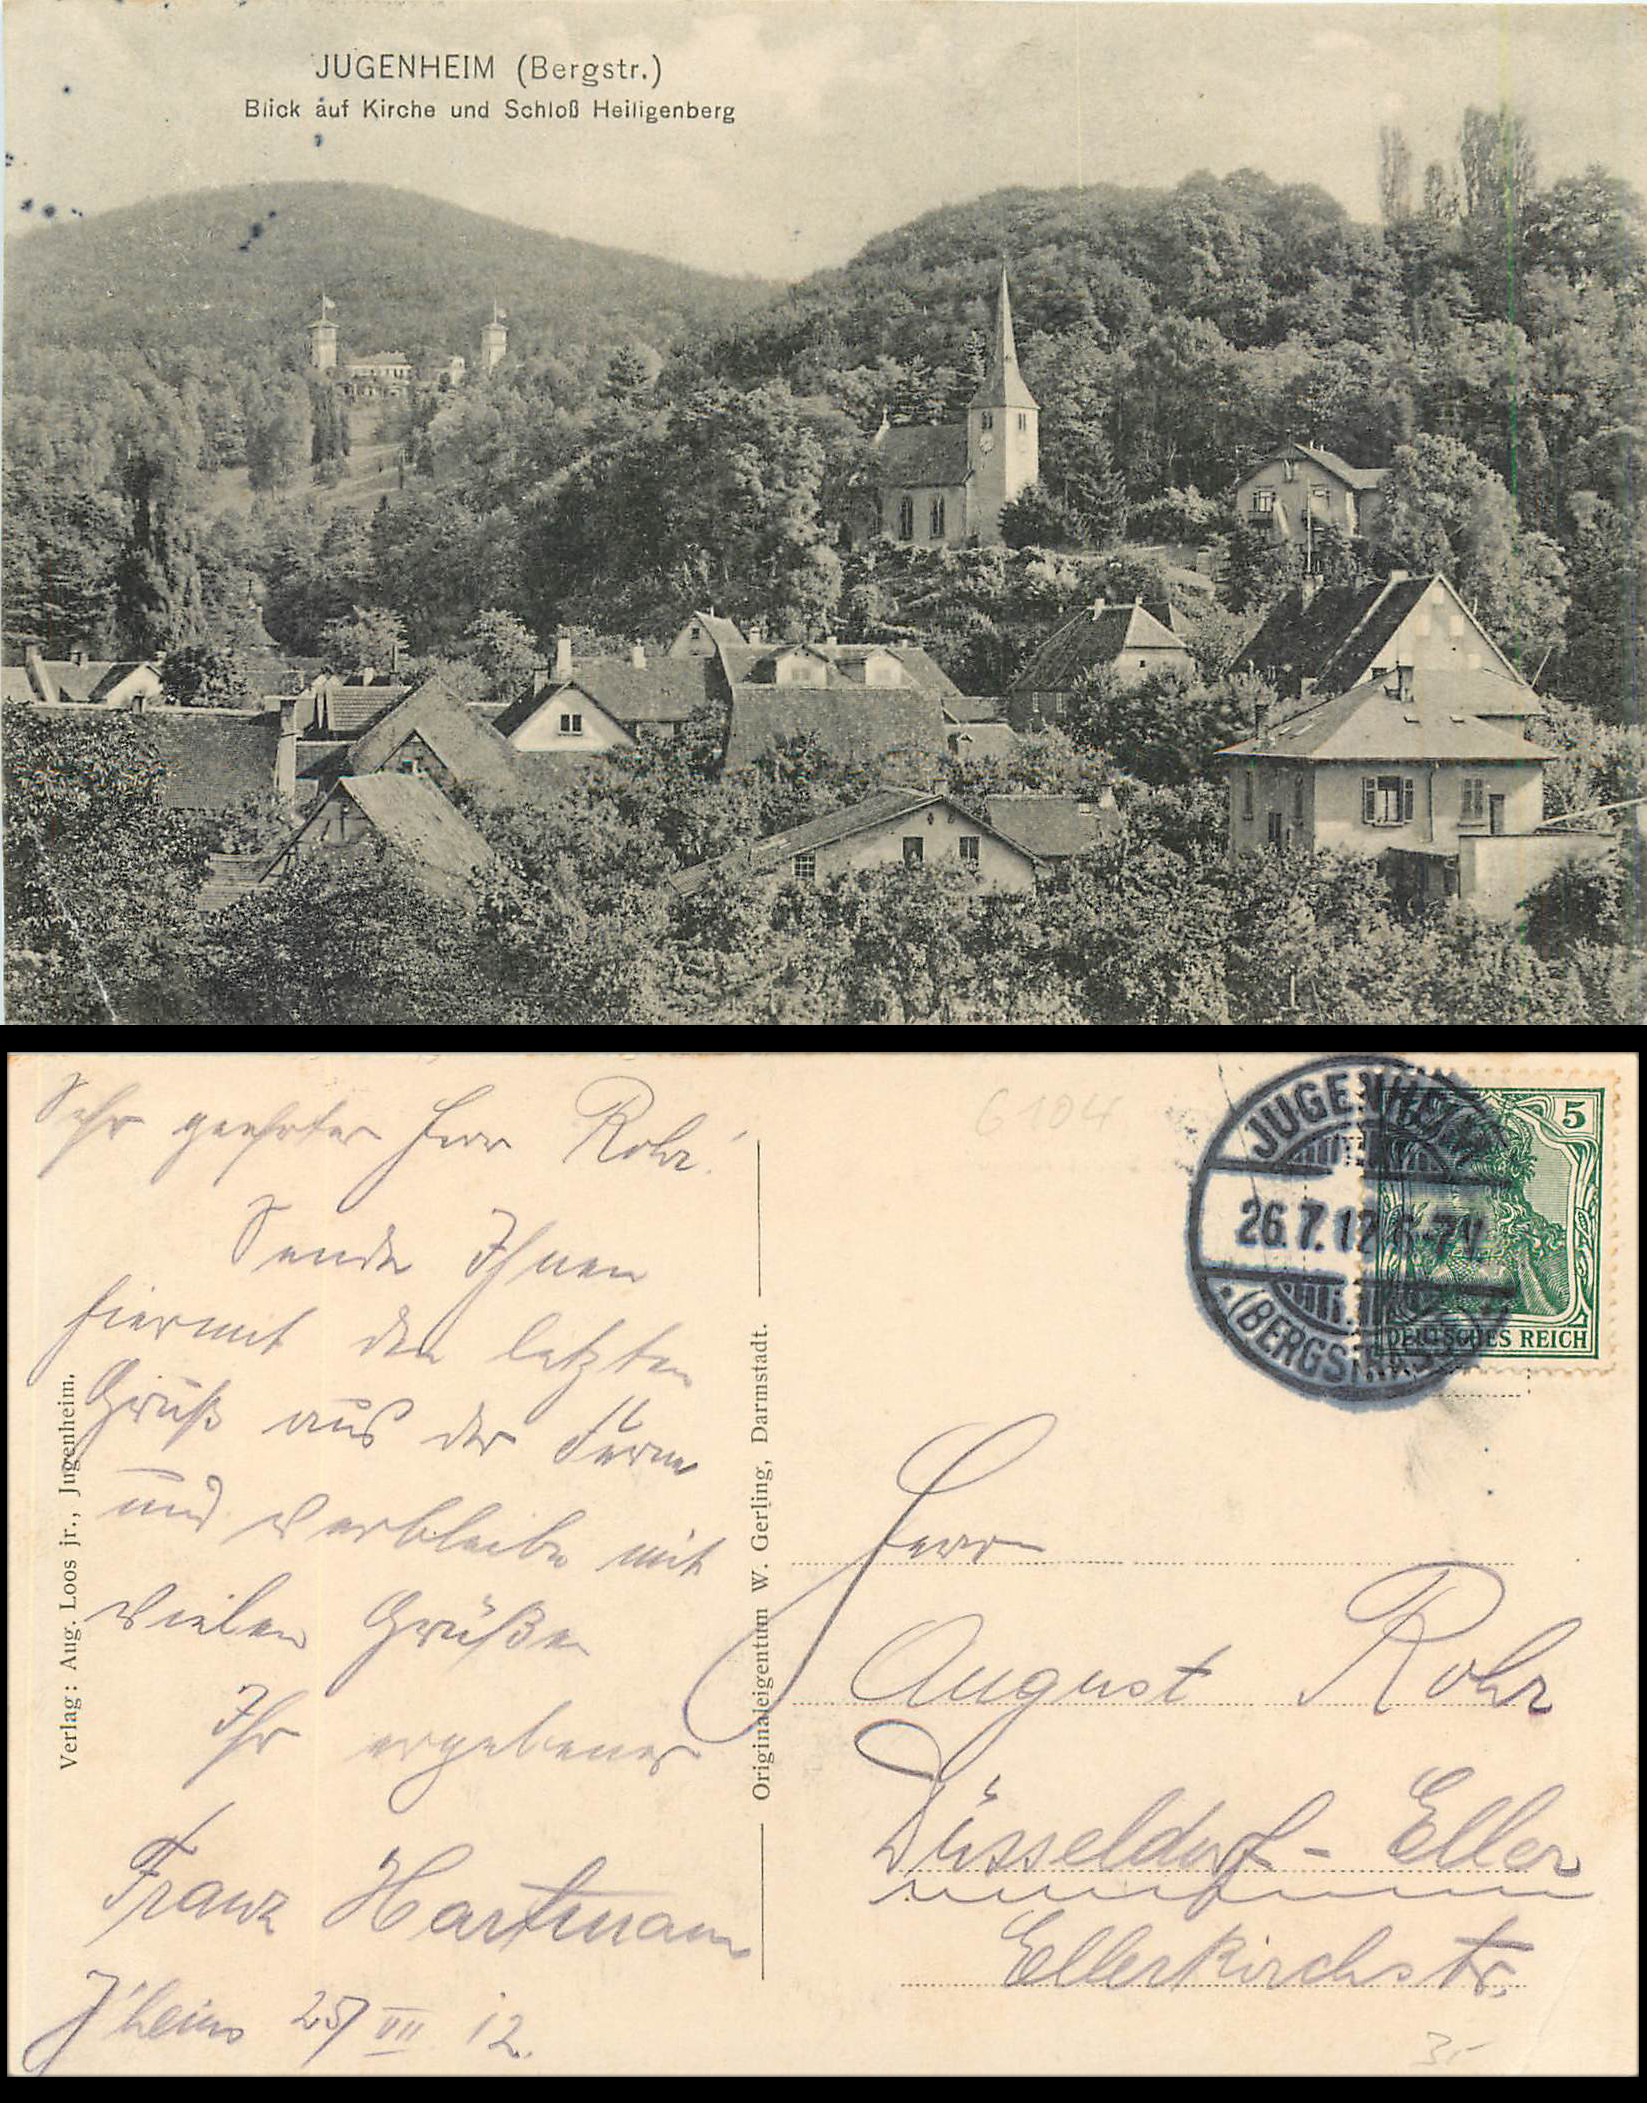 JUGENHEIM (Bergstr.)
Blick auf Kirche und Schloß Heiligenberg
Sehr geehrter Herr Rohr!
Sende Ihnen
hiermit den letzten
Gruß aus der Ferne
und verbleibe mit
vielen Grüßen
Ihr ergebener
Franz Hartmann
J'heim 25/VII 12.
Verlag: Aug. Loos jr., Jugenheim.
Originaleigentum W. Gerling, Darmstadt.
G 104
JUGENHEIM
26.7.12 6-7N
(BERGSTRASSE)
5
DEUTSCHES REICH
Herrn
August Rohr
Düsseldorf-Eller
Ellerkirchstr.
3,-